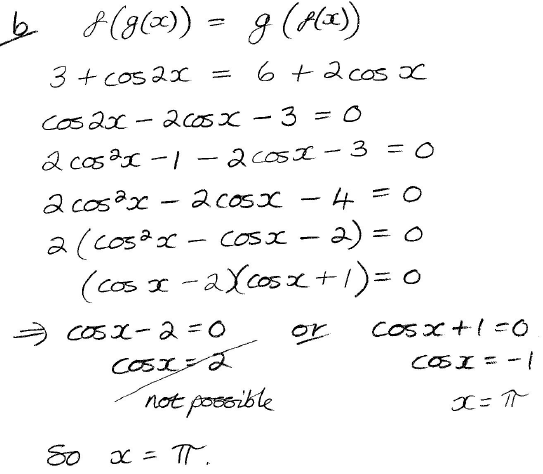 b f(g(x)) = g(f(x))
3 + cos2x = 6 + 2cos x
cos2x - 2cosx - 3 = 0
2cos²x - 1 - 2cosx - 3 = 0
2cos²x - 2cosx - 4 = 0
2(cos²x - cosx - 2) = 0
(cos x - 2)(cosx + 1) = 0
⇒ cosx - 2 = 0 or cosx + 1 = 0
cosx = 2 cosx = -1
not possible x = π
So x = π.